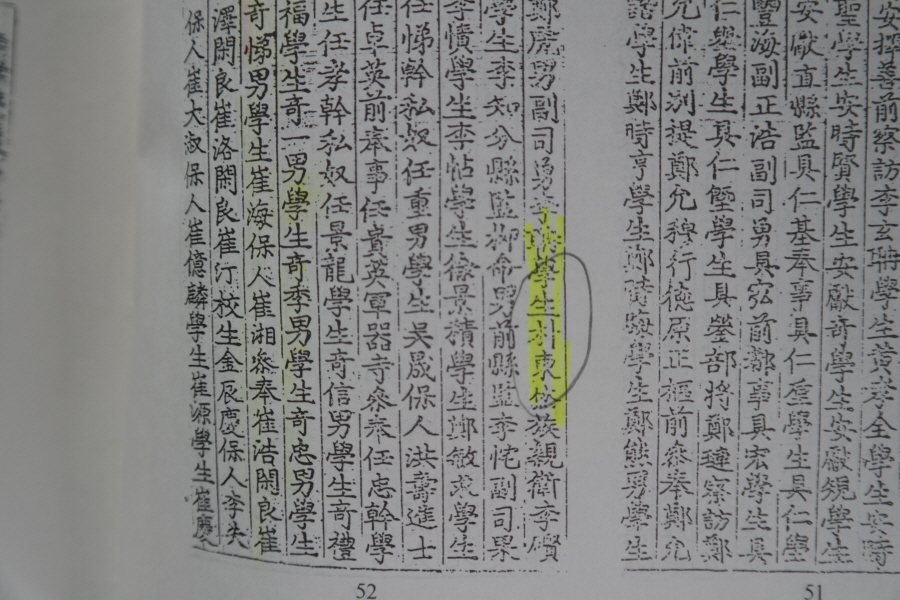 安擇善前察訪李玄珊學生黃孝全學生安時
聖學生安時賢學生安獻奇學生安獻規學生
安獻直縣監具仁基奉事具仁學生具仁
豐海副正浩副司勇具宖前事具宏學生具
仁學生具仁學生具瑩部將鄭璉察訪鄭
允偉前別提鄭允穆行德原正樞前參奉鄭允
諧學生鄭時亨學生鄭時晦學生鄭熊男學生
51
鄭應男副司勇李學生朴東族親衛李碩
學生李知分縣監柳命男前縣監李副司果
李憤學生李怗學生徐景積學生鄭敏學生
任悌幹私奴任重男學生吳晟保人洪壽進士
任卓英前奉事任貴英軍器寺參奉任忠幹學
生任孝幹私奴任景龍學生奇信男學生奇禮
福學生奇一男學生奇季男學生奇忠男學生
奇悌男學生崔海保人崔湘參奉崔浩閑良崔
澤閑良崔洛閑良崔汀校生金辰慶保人李失
保人崔大淑保人崔億麟學生崔源學生崔慶
52